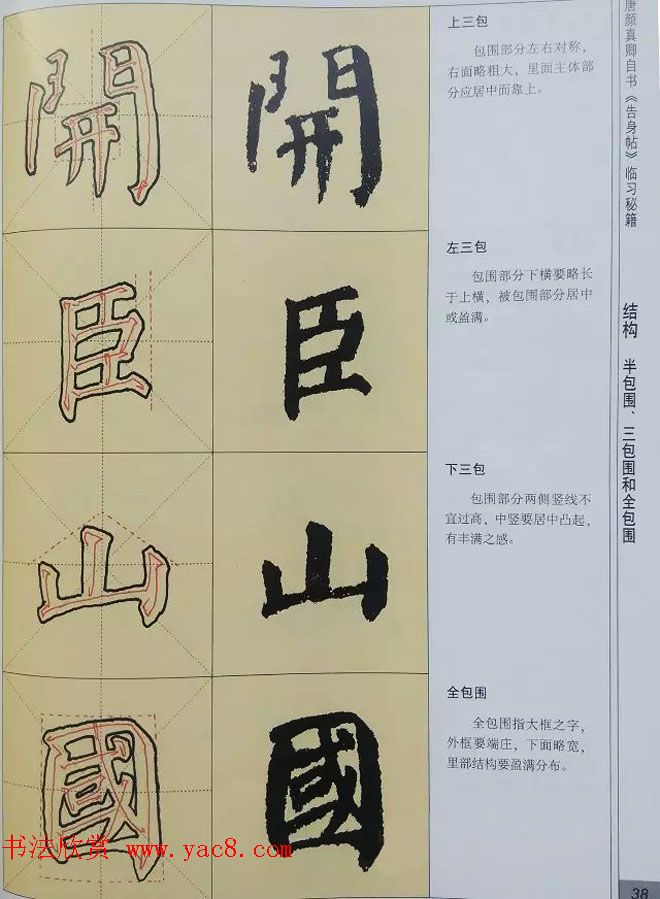 開 開
上三包
包围部分左右对称，
右面略粗大，里面主体部
分应居中而靠上。
臣 臣
左三包
包围部分下横要略长
于上横，被包围部分居中
或盈满。
山 山
下三包
包围部分两侧竖线不
宜过高，中竖要居中凸起，
有丰满之感。
國 國
全包围
全包围指大框之字，
外框要端庄，下面略宽，
里部结构要盈满分布。
唐颜真卿自书《告身帖》临习秘籍
结构 半包围、三包围和全包围
38
书法欣赏 www.yac8.com